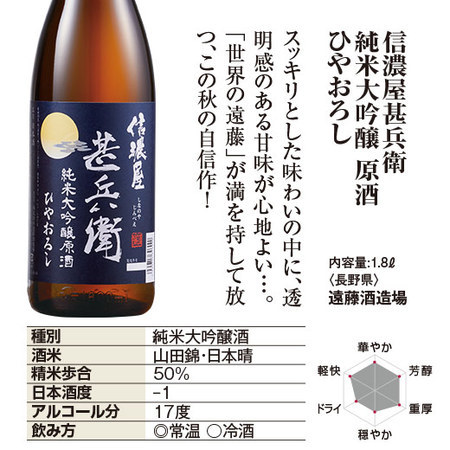 信濃屋甚兵衛
純米大吟醸 原酒
ひやおろし
スッキリとした味わいの中に、透
明感のある甘味が心地よい…。
「世界の遠藤」が満を持して放
つ、この秋の自信作！
内容量:1.8ℓ
〈長野県〉
遠藤酒造場
信濃屋
甚兵衛
しなのや
じんべえ
純米大吟醸原酒
ひやおろし
種別 純米大吟醸酒
酒米 山田錦・日本晴
精米歩合 50%
日本酒度 −1
アルコール分 17度
飲み方 ◎常温 ○冷酒
華やか
芳醇
重厚
穏やか
ドライ
軽快